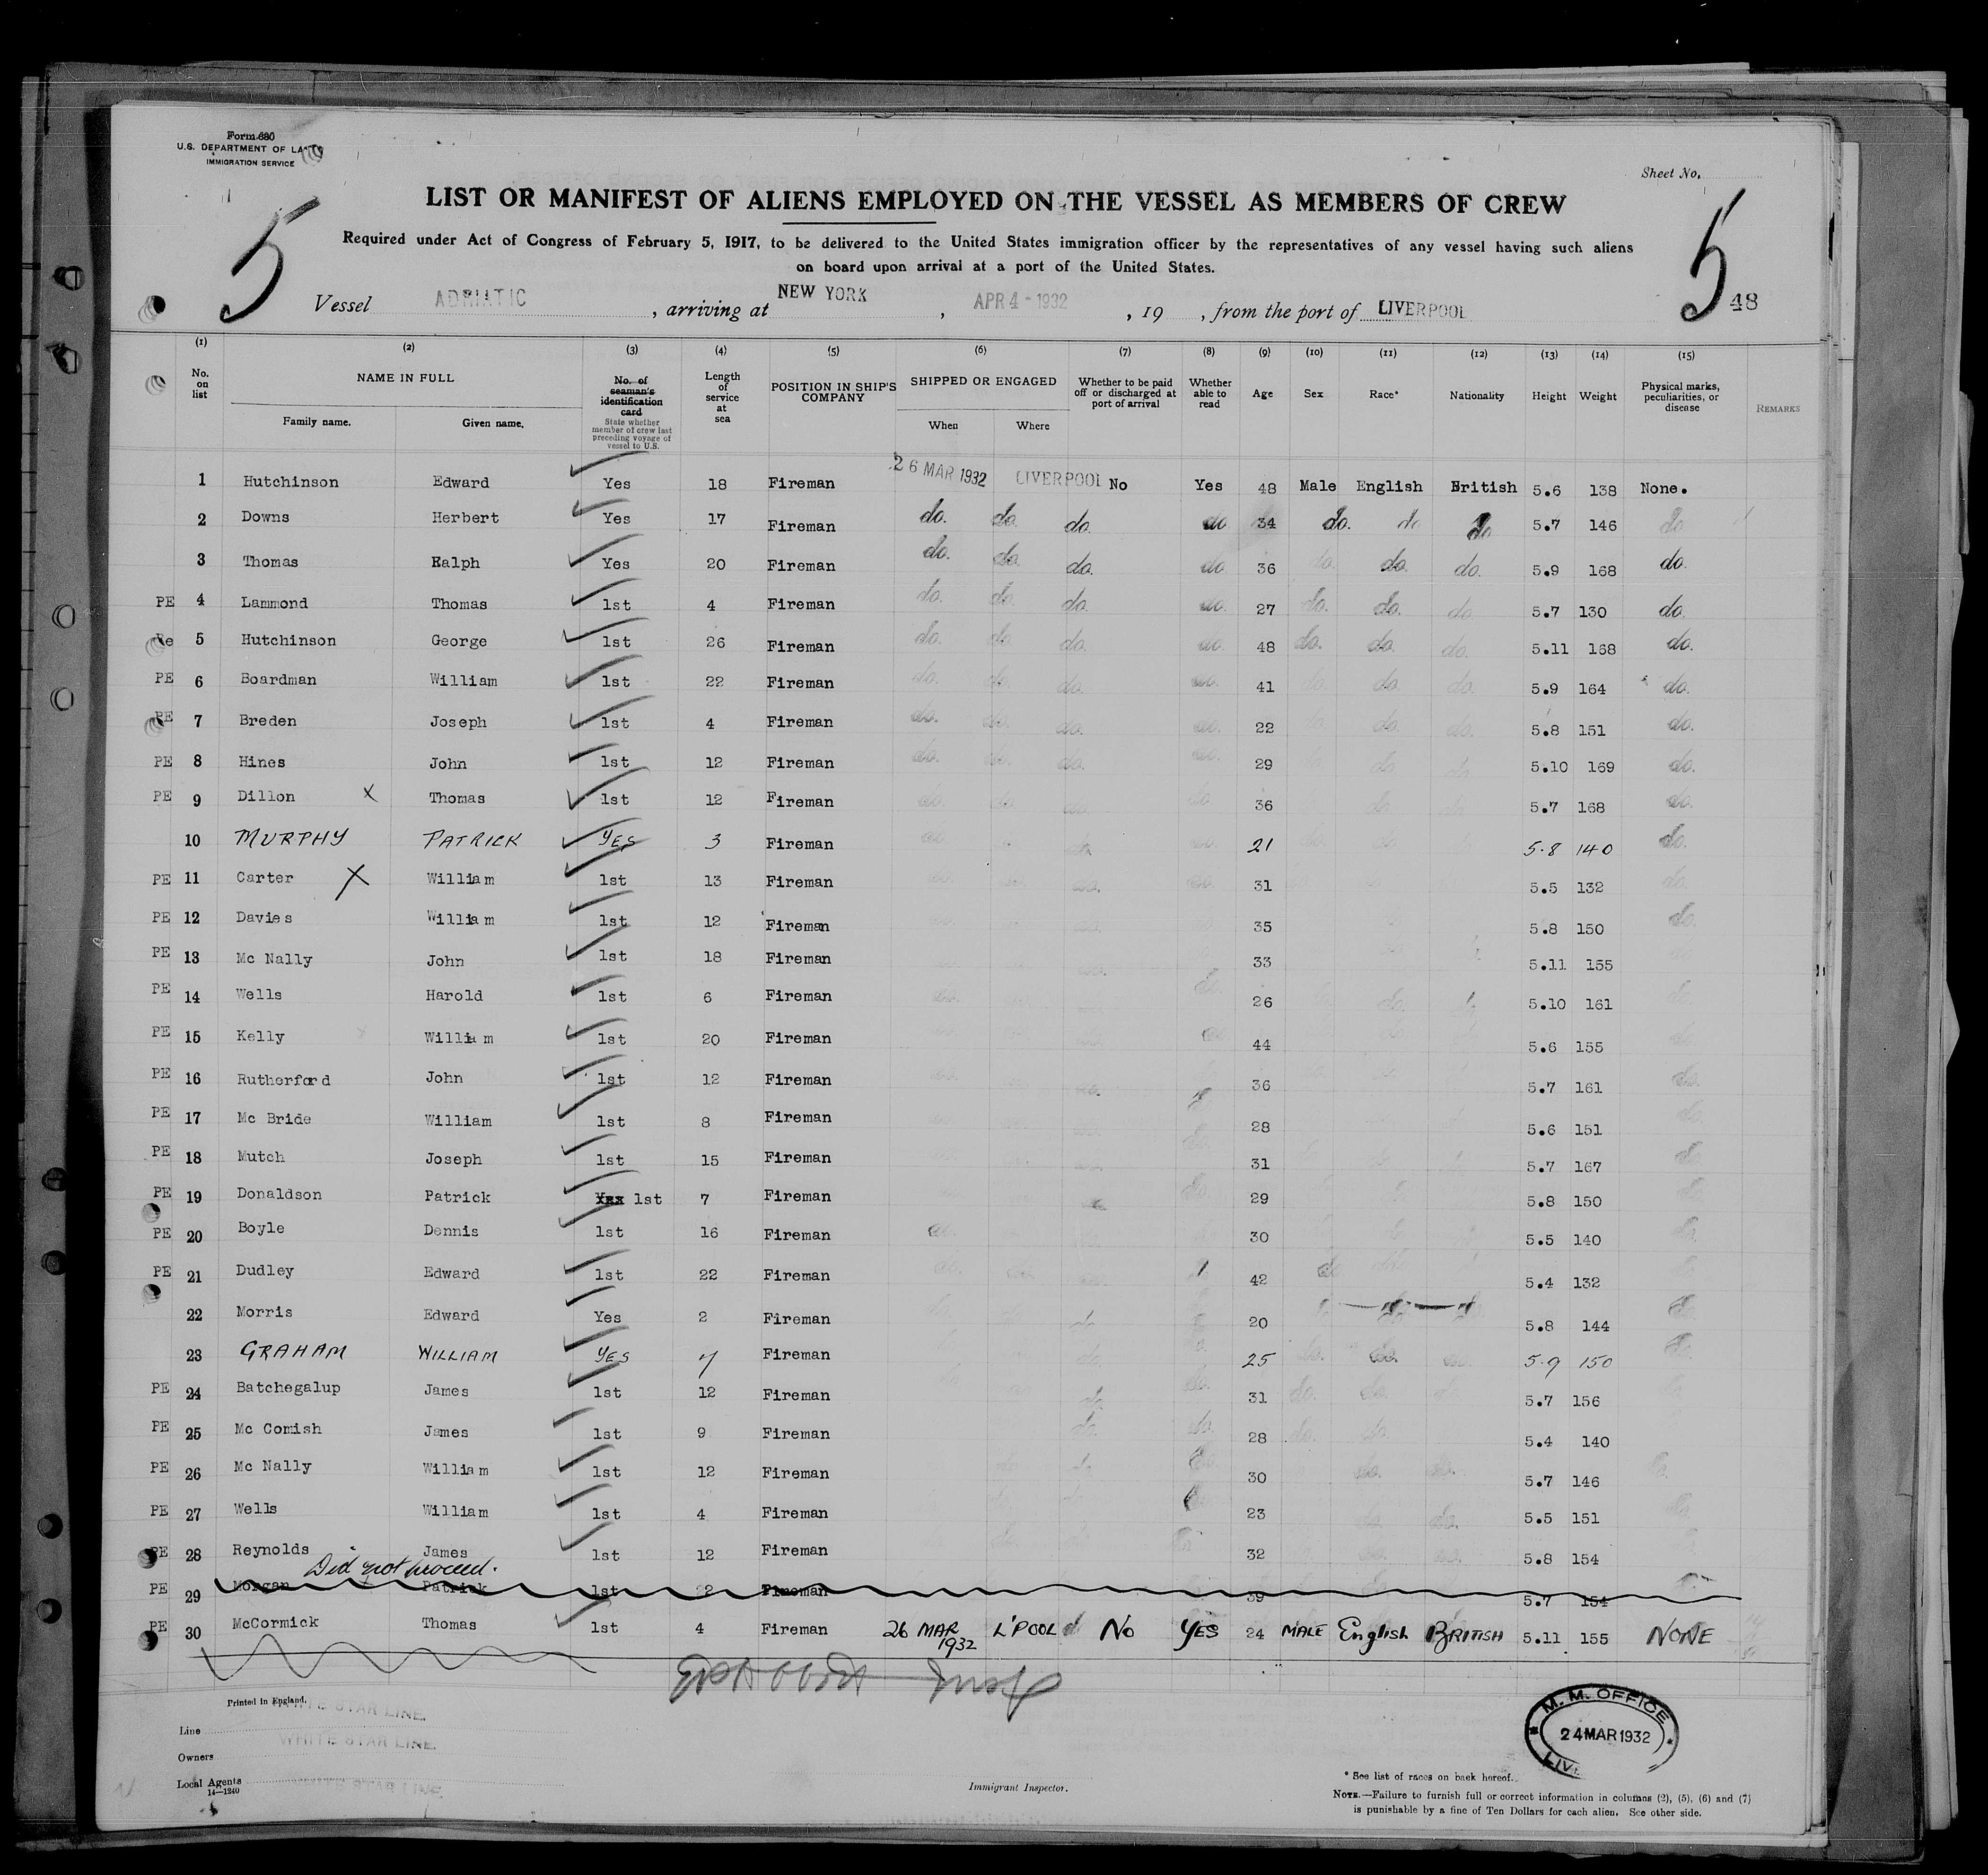 Form 680
U.S. DEPARTMENT OF LABOR
IMMIGRATION SERVICE
Sheet No.
LIST OR MANIFEST OF ALIENS EMPLOYED ON THE VESSEL AS MEMBERS OF CREW
Required under Act of Congress of February 5, 1917, to be delivered to the United States immigration officer by the representatives of any vessel having such aliens
on board upon arrival at a port of the United States.
5 5 48
Vessel ADRIATIC, arriving at NEW YORK, APR 4 - 1932, 19 , from the port of LIVERPOOL
(1) (2) (3) (4) (5) (6) (7) (8) (9) (10) (11) (12) (13) (14) (15)
No. on list NAME IN FULL Family name. Given name. No. of seaman's identification card State whether member of crew last preceding voyage of vessel to U.S. Length of service at sea POSITION IN SHIP'S COMPANY SHIPPED OR ENGAGED When Where Whether to be paid off or discharged at port of arrival Whether able to read Age Sex Race* Nationality Height Weight Physical marks, peculiarities, or disease REMARKS
1 Hutchinson Edward Yes 18 Fireman 26 MAR 1932 LIVERPOOL No Yes 48 Male English British 5.6 138 None.
2 Downs Herbert Yes 17 Fireman do. do. do. do 34 do. do do 5.7 146 do
3 Thomas Ralph Yes 20 Fireman do. do. do. do 36 do. do. do. 5.9 168 do.
PE 4 Lammond Thomas 1st 4 Fireman do. do. do. do. 27 do. do. do. 5.7 130 do.
Re 5 Hutchinson George 1st 26 Fireman do. do. do. do. 48 do. do. do. 5.11 168 do.
PE 6 Boardman William 1st 22 Fireman do. do. do. do. 41 do. do. do. 5.9 164 do.
PE 7 Breden Joseph 1st 4 Fireman do. do. do. do. 22 do. do. 5.8 151 do.
PE 8 Hines John 1st 12 Fireman do. do. do. do. 29 do do 5.10 169 do.
PE 9 Dillon X Thomas 1st 12 Fireman do. do. do. do 36 do do 5.7 168 do.
10 MURPHY PATRICK YES 3 Fireman do. do 21 5.8 140 do.
PE 11 Carter X William 1st 13 Fireman do. do. 31 5.5 132 do.
PE 12 Davies William 1st 12 Fireman 35 5.8 150 do.
PE 13 Mc Nally John 1st 18 Fireman 33 5.11 155
PE 14 Wells Harold 1st 6 Fireman do. do. 26 do. 5.10 161
PE 15 Kelly William 1st 20 Fireman 44 5.6 155
PE 16 Rutherford John 1st 12 Fireman do. 36 5.7 161 do.
PE 17 Mc Bride William 1st 8 Fireman 28 5.6 151
PE 18 Mutch Joseph 1st 15 Fireman 31 5.7 167 do.
PE 19 Donaldson Patrick Yes 1st 7 Fireman 29 5.8 150
PE 20 Boyle Dennis 1st 16 Fireman 30 5.5 140
PE 21 Dudley Edward 1st 22 Fireman 42 do 5.4 132
22 Morris Edward Yes 2 Fireman 20 5.8 144 do.
23 GRAHAM WILLIAM YES 7 Fireman do. 25 do. do. do. 5.9 150 do.
PE 24 Batchegalup James 1st 12 Fireman do. do. 31 do. do. do. 5.7 156
PE 25 Mc Comish James 1st 9 Fireman do. do. 28 do. do. 5.4 140
PE 26 Mc Nally William 1st 12 Fireman 30 do. do. 5.7 146
PE 27 Wells William 1st 4 Fireman 23 do. do. 5.5 151
PE 28 Reynolds James 1st 12 Fireman 32 do. do. 5.8 154
Did not proceed.
PE 29 Morgan Patrick 1st 2 Fireman 39 5.7 154
PE 30 McCormick Thomas 1st 4 Fireman 26 MAR 1932 L'POOL No YES 24 MALE English BRITISH 5.11 155 NONE
Printed in England.
Line WHITE STAR LINE.
Owners WHITE STAR LINE.
Local Agents WHITE STAR LINE
14—1240
Immigrant Inspector.
M. M. OFFICE
24 MAR 1932
* See list of races on back hereof.
NOTE.—Failure to furnish full or correct information in columns (2), (5), (6) and (7)
is punishable by a fine of Ten Dollars for each alien. See other side.